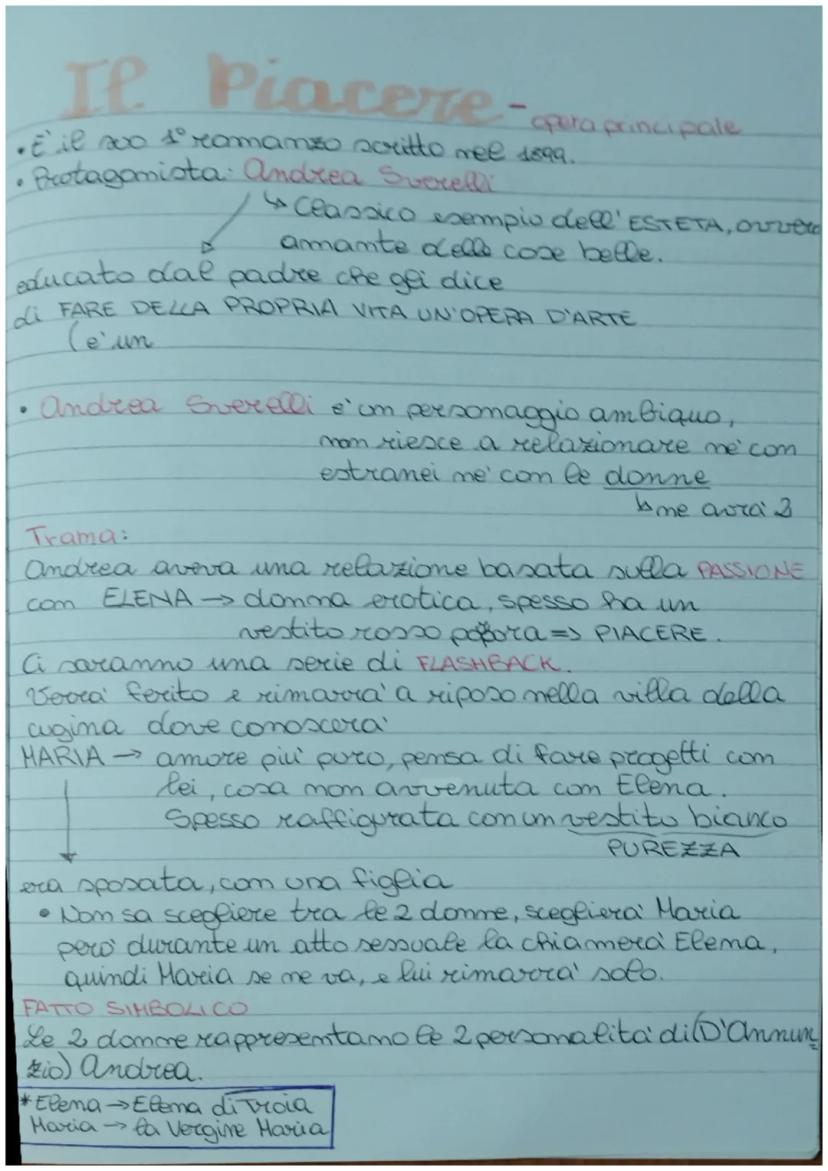 Il Piacere - opera principale
• E' il suo 1° romanzo scritto nel 1899.
• Protagonista: Andrea Sverelli
↳ Classico esempio dell'ESTETA, ovvero
amante delle cose belle.
educato dal padre che gli dice
di FARE DELLA PROPRIA VITA UN'OPERA D'ARTE
(e' un
• Andrea Sverelli e' un personaggio ambiguo,
non riesce a relazionare ne' con
estranei ne' con le donne
↳ ne avrà 2
Trama:
Andrea aveva una relazione basata sulla PASSIONE
con ELENA → donna erotica, spesso ha un
vestito rosso porpora => PIACERE.
Ci saranno una serie di FLASHBACK.
Verra' ferito e rimarra' a riposo nella villa della
cugina dove conoscera'
MARIA → amore piu' puro, pensa di fare progetti con
lei, cosa non avvenuta con Elena.
Spesso raffigurata con un vestito bianco
PUREZZA
era sposata, con una figlia
• Non sa scegliere tra le 2 donne, sceglierà Maria
pero' durante un atto sessuale la chiamerà Elena,
quindi Maria se ne va, e lui rimarra' solo.
FATTO SIMBOLICO
Le 2 donne rappresentano le 2 personalita' di (D'Annun
zio) Andrea.
* Elena → Elena di Troia
Maria → la Vergine Maria